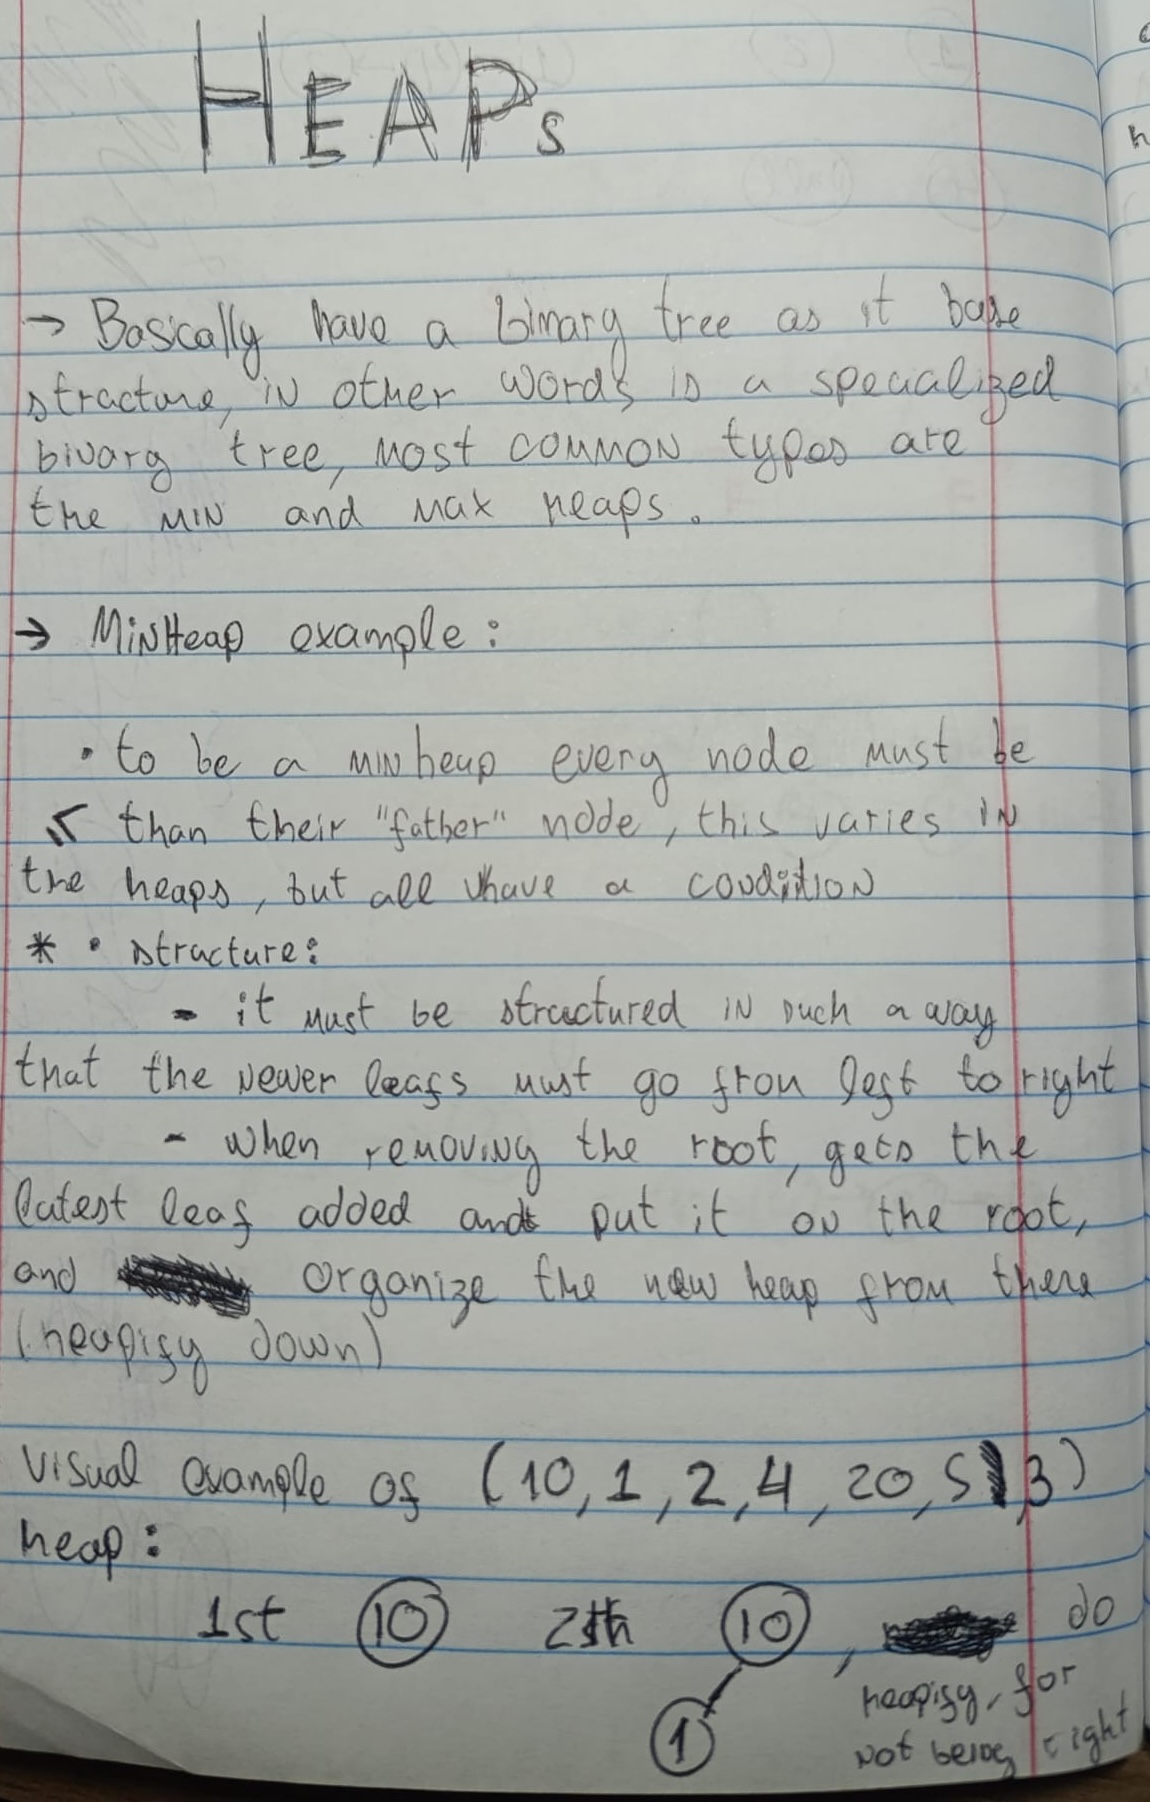 HEAPs
→ Basically have a binary tree as it base
structure, in other words is a specialized
binary tree, most common types are
the MIN and Max heaps.
→ MinHeap example:
• to be a MIN heap every node must be
≤ than their "father" node, this varies in
the heaps, but all have a condition
* • structure:
- it must be structured in such a way
that the newer leafs must go from left to right
- when removing the root, gets the
latest leaf added and put it on the root,
and organize the new heap from there
(heapify down)
Visual example of (10, 1, 2, 4, 20, 5, 3)
heap:
1st 10 2th 10 , do
1 heapify, for
not being right